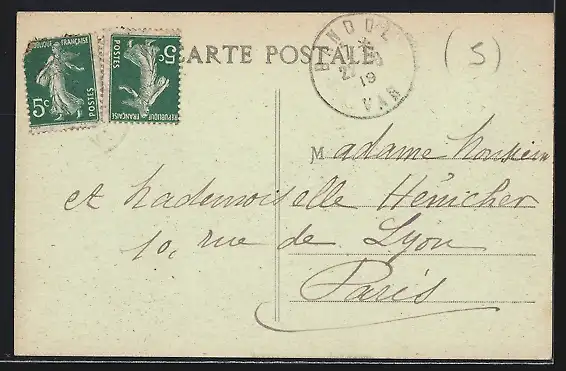 RÉPUBLIQUE FRANÇAISE
5c POSTES
5c POSTES
RÉPUBLIQUE FRANÇAISE
CARTE POSTALE
BANDOL
19
VAR
(5)
Madame Monsieur
et Mademoiselle Hénicher
10, rue de Lyon
Paris